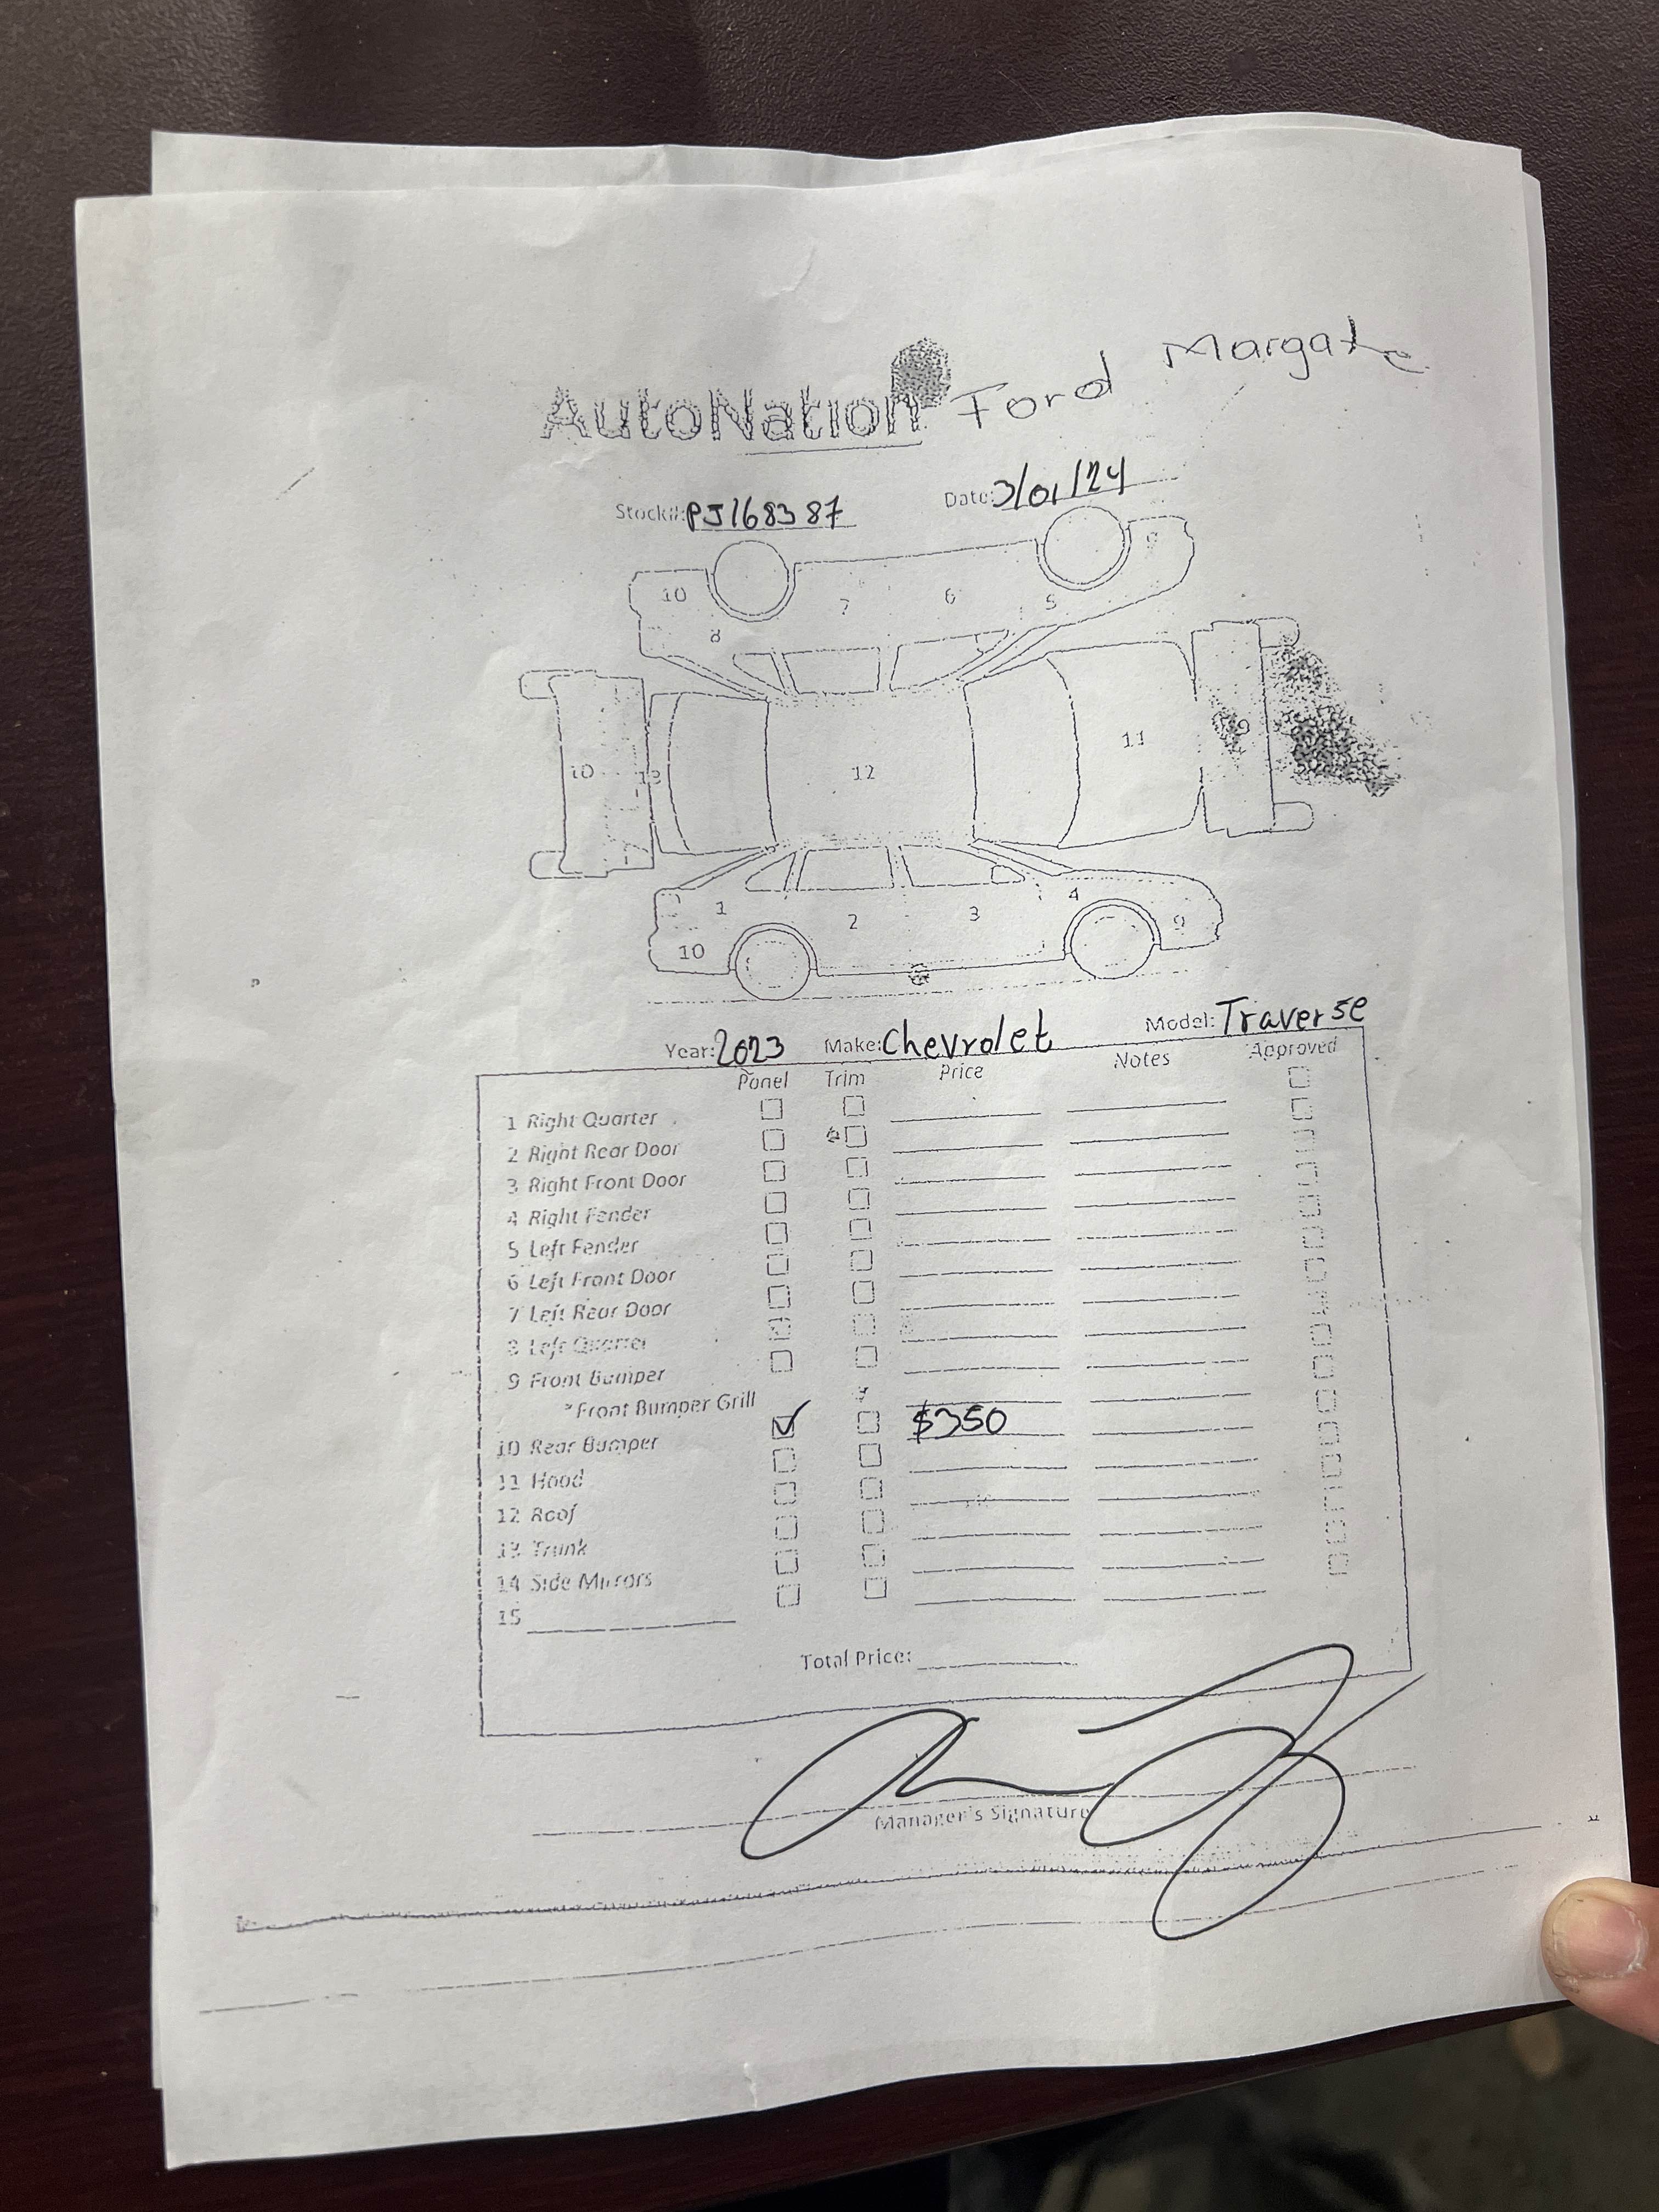 AutoNation Ford Margate
Stock#: PJ168387 Date: 3/01/24
10 7 6 5 9
8
10 13 12 11 9
1 2 3 4 9
10
Year: 2023 Make: Chevrolet Model: Traverse
Panel Trim Price Notes Approved
1 Right Quarter
2 Right Rear Door
3 Right Front Door
4 Right Fender
5 Left Fender
6 Left Front Door
7 Left Rear Door
8 Left Quarter
9 Front Bumper
*Front Bumper Grill
10 Rear Bumper $350
11 Hood
12 Roof
13 Trunk
14 Side Mirrors
15
Total Price:
Manager's Signature